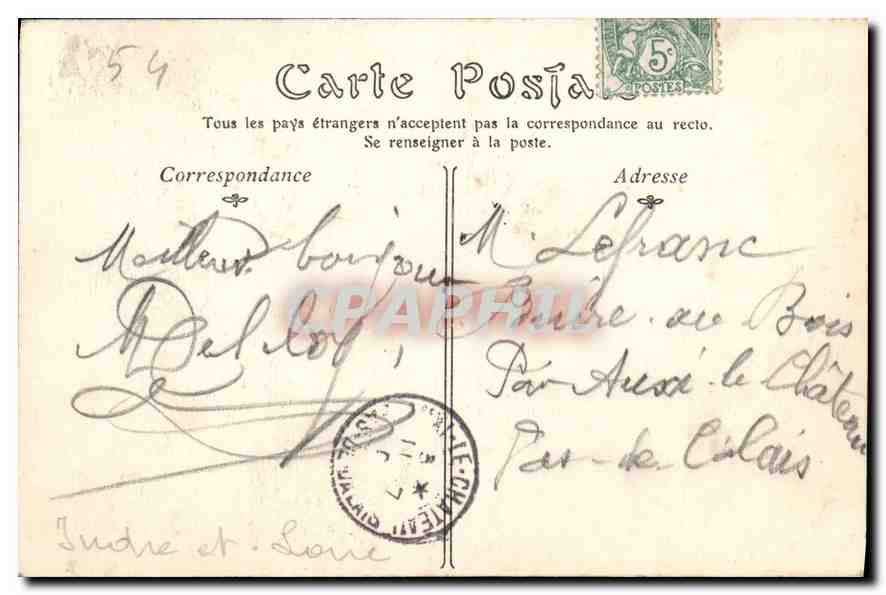 54
Carte Postale
5c
POSTES
Tous les pays étrangers n'acceptent pas la correspondance au recto.
Se renseigner à la poste.
Correspondance
Adresse
Meilleurs bonjour
M. Lefranc
Buire-au Bois
Par Auxi-le Château
Pas-de-Calais
CPAPHIL
XI-LE-CHATEAU
PAS-DE-CALAIS
Indre et-Loire